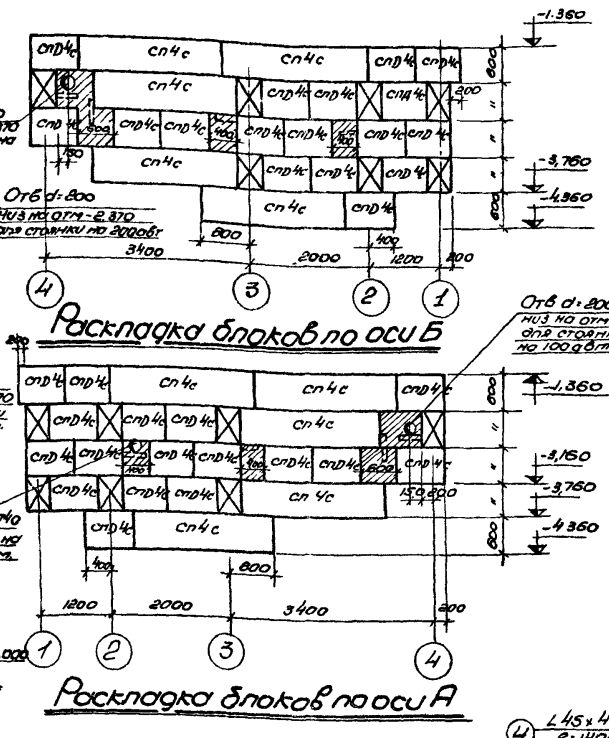 -1.360
спД4с сп4с сп4с спД4с спД4с
600
сп4с спД4с спД4с спД4с 200
"
спД4с 600 спД4с спД4с 400 спД4с спД4с 400 спД4с спД4с
"
сп4с спД4с спД4с спД4с
-3,760
Отв d=200
сп4с спД4с
600
-4.360
низ на отм-2.370
для стоянки на 200овт
800
400
3400 2000 1200 200
4 3 2 1
Раскладка блоков по оси Б
Отв d=200
низ на отм
для стоян
на 100 овт
200
спД4с спД4с сп4с сп4с спД4с
600
-1,360
спД4с спД4с спД4с сп4с
"
спД4с спД4с 400 спД4с спД4с 400 спД4с спД4с 600 спД4с
"
-3,160
150 200
спД4с спД4с спД4с сп4с
"
-3,760
спД4с сп4с
600
-4360
400
800
1200 2000 3400 200
1 2 3 4
Раскладка блоков по оси А
4
L45×4